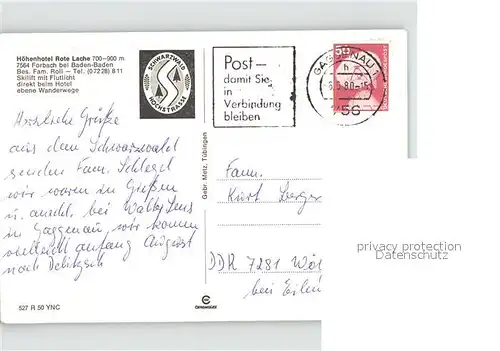 Höhenhotel Rote Lache 700-900 m
7564 Forbach bei Baden-Baden
Bes. Fam. Roll - Tel. (07228) 811
Skilift mit Flutlicht
direkt beim Hotel
ebene Wanderwege
SCHWARZWALD
HOCHSTRASSE
Post-
damit Sie
in
Verbindung
bleiben
GAGGENAU 1
50
h
80-15
56
Herzliche Grüße
aus dem Schwarzwald
senden Fam. Schlegel
wir waren in Gießen
u. anschl. bei
Gaggenau, wir kommen
vielleicht anfang August
nach Delitzsch
Gebr. Metz, Tübingen
Fam.
Kurt Berger
DDR 7281
bei Eilen
privacy protection
Datenschutz
527 R 50 YNC